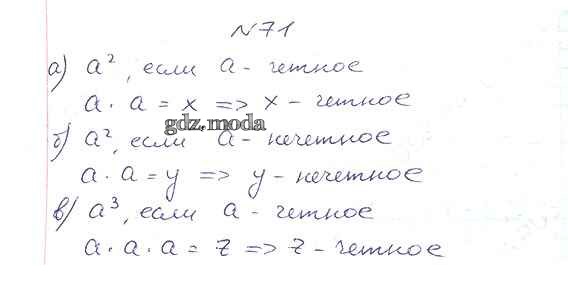 №71
а) a², если a - четное
a · a = x => x - четное
gdz.moda
б) a², если a - нечетное
a · a = y => y - нечетное
в) a³, если a - четное
a · a · a = z => z - четное